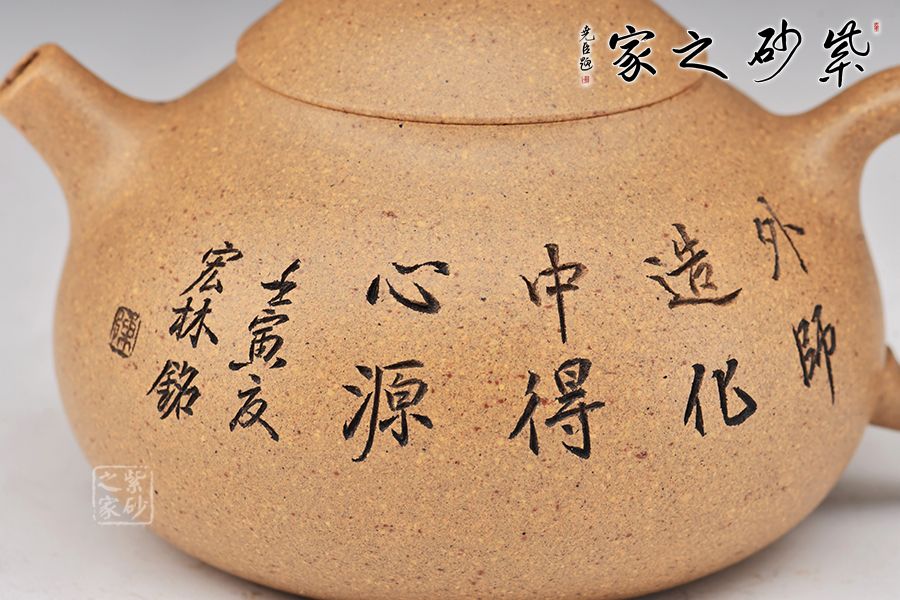 紫砂之家
尧臣题
外師
造化
中得
心源
壬寅夏
宏林銘
紫砂之家